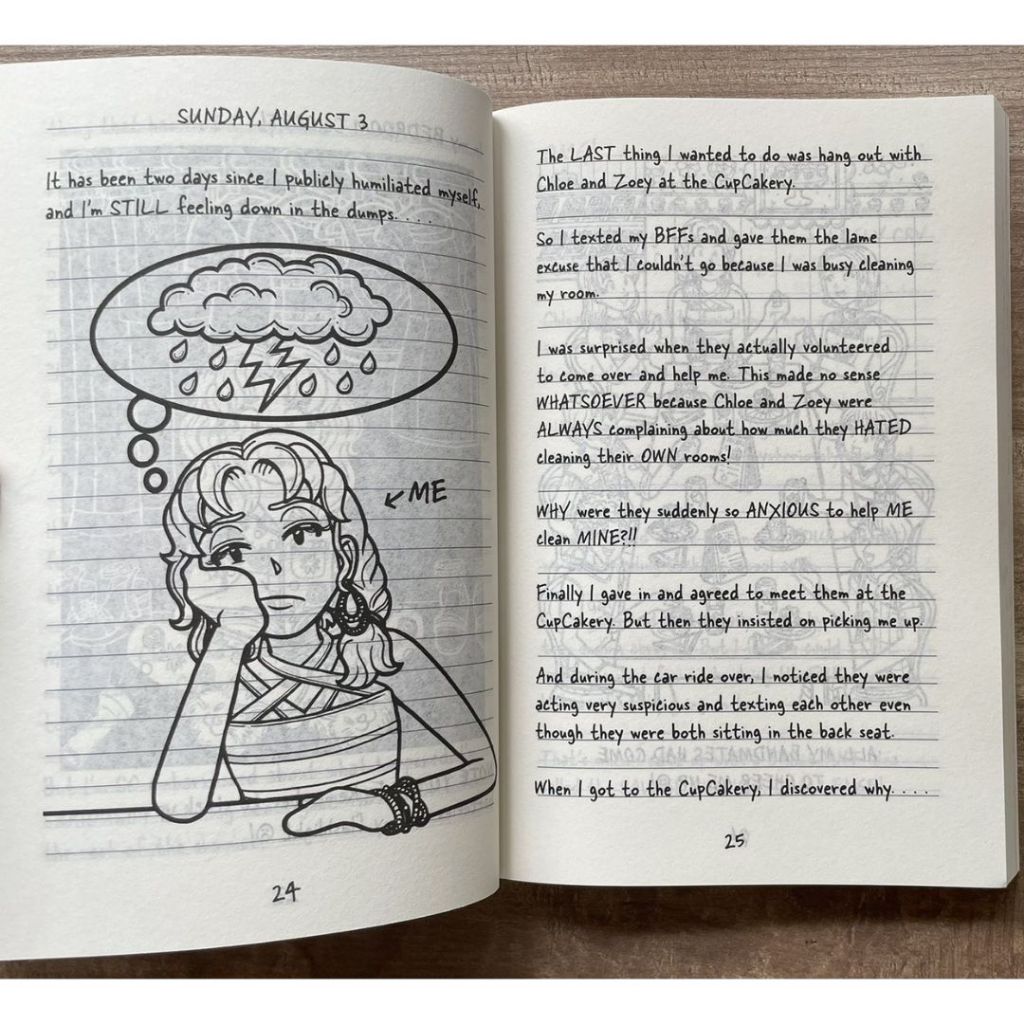 SUNDAY, AUGUST 3
It has been two days since I publicly humiliated myself,
and I'm STILL feeling down in the dumps. . . .
ME
24
The LAST thing I wanted to do was hang out with
Chloe and Zoey at the CupCakery.
So I texted my BFFs and gave them the lame
excuse that I couldn't go because I was busy cleaning
my room.
I was surprised when they actually volunteered
to come over and help me. This made no sense
WHATSOEVER because Chloe and Zoey were
ALWAYS complaining about how much they HATED
cleaning their OWN rooms!
WHY were they suddenly so ANXIOUS to help ME
clean MINE?!!
Finally I gave in and agreed to meet them at the
CupCakery. But then they insisted on picking me up.
And during the car ride over, I noticed they were
acting very suspicious and texting each other even
though they were both sitting in the back seat.
When I got to the CupCakery, I discovered why. . . .
25